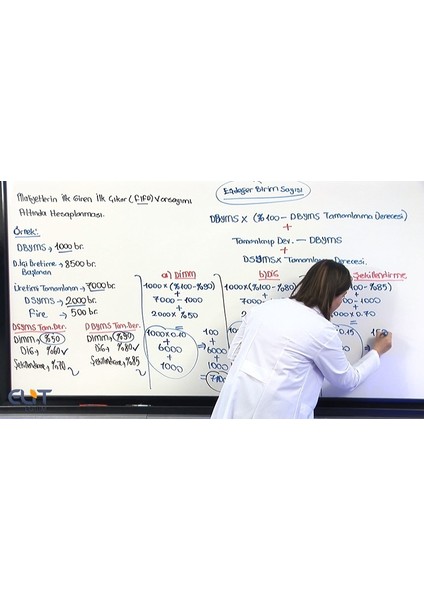 Maliyetlerin İlk Giren İlk Çıkar (FIFO) Varsayımı
Altında Hesaplanması.
Örnek:
DBYMS → 1000 br.
D. İçi Üretime → 8500 br.
Başlanan
Üretimi Tamamlanan → 7000 br
DSYMS → 2000 br
Fire → 500 br
DSYMS Tam. Der.
Dimm → %50
DİG → %60
Şekillendirme → %70
DBYMS Tam. Der.
Dimm → %90
DG → %80
Şekillendirme → %85
Eşdeğer Birim Sayısı
DBYMS x (%100 - DBYMS Tamamlanma Derecesi)
+
Tamamlanıp Dev. — DBYMS
+
DSYMS x Tamamlanma Derecesi.
a) Dimm
1000 x (%100 - %90)
+
7000 - 1000
+
2000 x %50
=
1000 x 0.10
+
6000
+
1000
⇒
100
+
6000
+
1000
=
b) DİG
1000 x (%100 - %80)
Şekillendirme
- %85)
- 1000
x 0.70
0.15